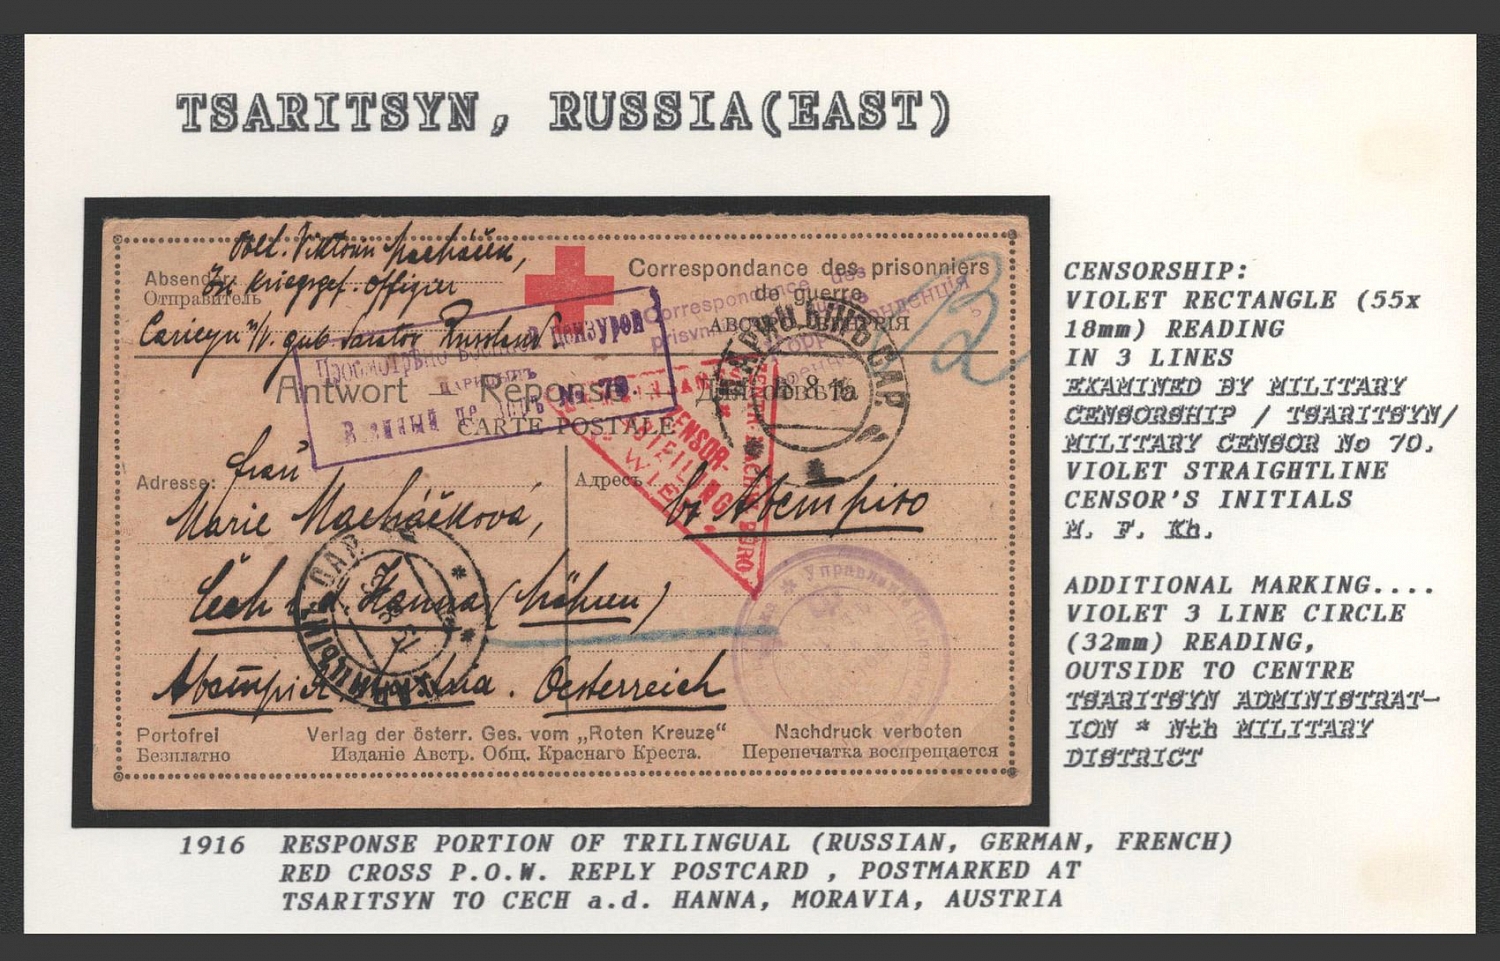 TSARITSYN, RUSSIA(EAST)
Absender:
Отправитель
Correspondance des prisonniers
de guerre
Kriegsgef. Offizier
gub. Saratov Russland
Antwort — Reponse — Для отвѣта
CARTE POSTALE
Просмотрѣно военной цензурой
Царицынъ
Военный цензоръ № 79.
ZENSOR-
ABTEILUNG
WIEN
ЦАРИЦЫНЪ САР.
Adresse:
Адресъ
Frau
Marie Macháčková,
Čech a.d. Hanna (Mähren)
Austria. Oesterreich
Portofrei
Безплатно
Verlag der österr. Ges. vom „Roten Kreuze“
Изданіе Австр. Общ. Краснаго Креста.
Nachdruck verboten
Перепечатка воспрещается
CENSORSHIP:
VIOLET RECTANGLE (55x
18mm) READING
IN 3 LINES
EXAMINED BY MILITARY
CENSORSHIP / TSARITSYN/
MILITARY CENSOR No 70.
VIOLET STRAIGHTLINE
CENSOR'S INITIALS
M. F. Kh.
ADDITIONAL MARKING....
VIOLET 3 LINE CIRCLE
(32mm) READING,
OUTSIDE TO CENTRE
TSARITSYN ADMINISTRAT-
ION * Nth MILITARY
DISTRICT
1916 RESPONSE PORTION OF TRILINGUAL (RUSSIAN, GERMAN, FRENCH)
RED CROSS P.O.W. REPLY POSTCARD , POSTMARKED AT
TSARITSYN TO CECH a.d. HANNA, MORAVIA, AUSTRIA